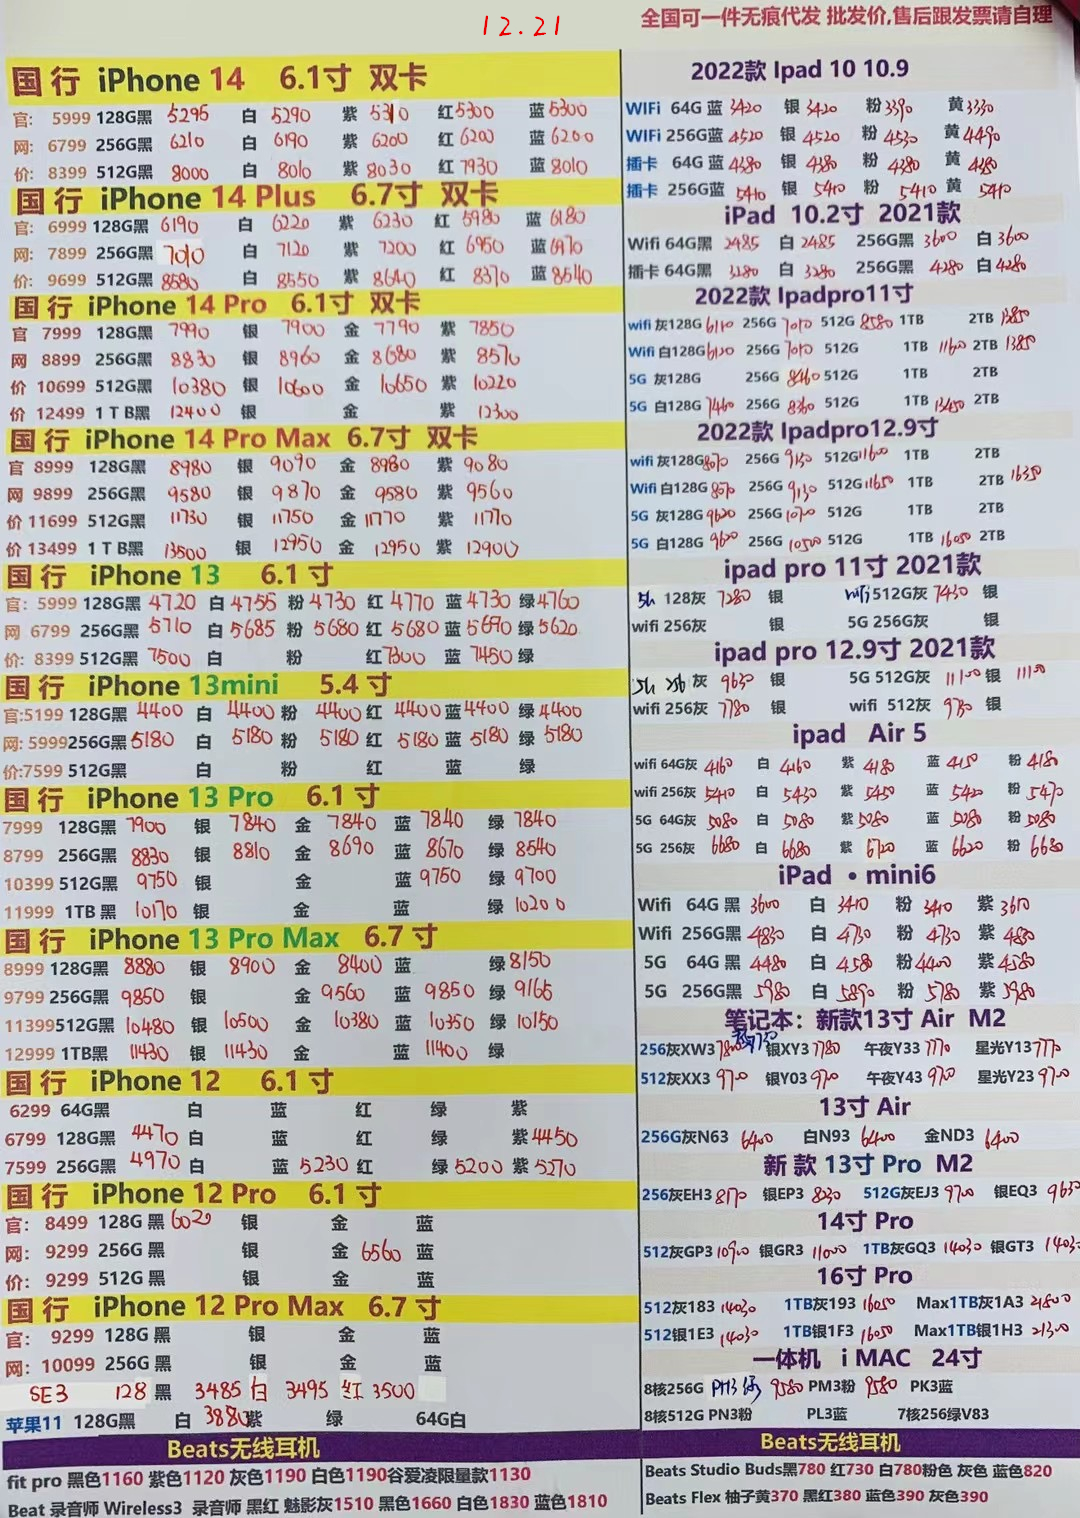 12.21
全国可一件无痕代发 批发价,售后跟发票请自理
国 行 iPhone 14 6.1寸 双卡
官: 5999 128G黑 5295 白 5290 紫 5310 红 5300 蓝 5300
网: 6799 256G黑 6210 白 6190 紫 6200 红 6200 蓝 6200
价: 8399 512G黑 8000 白 8010 紫 8030 红 7930 蓝 8010
国 行 iPhone 14 Plus 6.7寸 双卡
官: 6999 128G黑 6190 白 6220 紫 6230 红 5980 蓝 6180
网: 7899 256G黑 7010 白 7120 紫 7200 红 6950 蓝 6970
价: 9699 512G黑 8580 白 8550 紫 8640 红 8370 蓝 8540
国 行 iPhone 14 Pro 6.1寸 双卡
官 7999 128G黑 7990 银 7900 金 7790 紫 7850
网 8899 256G黑 8830 银 8960 金 8680 紫 8570
价 10699 512G黑 10380 银 10600 金 10650 紫 10220
价 12499 1 T B黑 12400 银 金 紫 12300
国 行 iPhone 14 Pro Max 6.7寸 双卡
官 8999 128G黑 8980 银 9090 金 8980 紫 9080
网 9899 256G黑 9580 银 9870 金 9580 紫 9560
价 11699 512G黑 11730 银 11750 金 11770 紫 11770
价 13499 1 T B黑 13500 银 12950 金 12950 紫 12900
国 行 iPhone 13 6.1 寸
官: 5999 128G黑 4720 白 4755 粉 4730 红 4770 蓝 4730 绿 4760
网 6799 256G黑 5710 白 5685 粉 5680 红 5680 蓝 5690 绿 5620
价: 8399 512G黑 7500 白 粉 红 7300 蓝 7450 绿
国 行 iPhone 13mini 5.4 寸
官:5199 128G黑 4400 白 4400 粉 4400 红 4400 蓝 4400 绿 4400
网: 5999256G黑 5180 白 5180 粉 5180 红 5180 蓝 5180 绿 5180
价:7599 512G黑 白 粉 红 蓝 绿
国 行 iPhone 13 Pro 6.1 寸
7999 128G黑 7900 银 7840 金 7840 蓝 7840 绿 7840
8799 256G黑 8830 银 8810 金 8690 蓝 8670 绿 8540
10399 512G黑 9750 银 金 蓝 9750 绿 9700
11999 1TB 黑 10170 银 金 蓝 绿 10200
国 行 iPhone 13 Pro Max 6.7 寸
8999 128G黑 8880 银 8900 金 8400 蓝 绿 8150
9799 256G黑 9850 银 金 9560 蓝 9850 绿 9165
11399512G黑 10480 银 10500 金 10380 蓝 10350 绿 10150
12999 1TB黑 11430 银 11430 金 蓝 11400 绿
国 行 iPhone 12 6.1 寸
6299 64G黑 白 蓝 红 绿 紫
6799 128G黑 4470 白 蓝 红 绿 紫 4450
7599 256G黑 4970 白 蓝 5230 红 绿 5200 紫 5270
国 行 iPhone 12 Pro 6.1 寸
官: 8499 128G 黑 6020 银 金 蓝
网: 9299 256G 黑 银 金 6560 蓝
价: 9299 512G 黑 银 金 蓝
国 行 iPhone 12 Pro Max 6.7 寸
官: 9299 128G 黑 银 金 蓝
网: 10099 256G 黑 银 金 蓝
SE3 128 黑 3485 白 3495 红 3500
苹果11 128G黑 白 3880 紫 绿 64G白
Beats无线耳机
fit pro 黑色1160 紫色1120 灰色1190 白色1190谷爱凌限量款1130
Beat 录音师 Wireless3 录音师 黑红 魅影灰1510 黑色1660 白色1830 蓝色1810
2022款 Ipad 10 10.9
WIFi 64G 蓝 3420 银 3420 粉 3390 黄 3330
WIFi 256G蓝 4520 银 4520 粉 4530 黄 4490
插卡 64G 蓝 4380 银 4380 粉 4280 黄 4280
插卡 256G蓝 5410 银 5410 粉 5410 黄 5410
iPad 10.2寸 2021款
Wifi 64G黑 2485 白 2485 256G黑 3600 白 3600
插卡 64G黑 3280 白 3280 256G黑 4280 白 4280
2022款 Ipadpro11寸
wifi 灰128G 6110 256G 7010 512G 8580 1TB 2TB 13850
Wifi 白128G 6120 256G 7010 512G 1TB 11160 2TB 13850
5G 灰128G 256G 8460 512G 1TB 2TB
5G 白128G 7460 256G 8360 512G 1TB 13450 2TB
2022款 Ipadpro12.9寸
wifi 灰128G 8070 256G 9130 512G 11600 1TB 2TB
Wifi 白128G 8070 256G 9130 512G 11650 1TB 2TB 16350
5G 灰128G 9620 256G 512G 1TB 2TB
5G 白128G 9600 256G 10500 512G 1TB 16050 2TB
ipad pro 11寸 2021款
5h 128灰 7280 银 wifi 512G灰 7430 银
wifi 256灰 银 5G 256G灰 银
ipad pro 12.9寸 2021款
5h 256 灰 9630 银 5G 512G灰 11100 银 11100
wifi 256灰 7780 银 wifi 512灰 9730 银
ipad Air 5
wifi 64G灰 4160 白 4160 紫 4180 蓝 4150 粉 4180
wifi 256灰 5410 白 5430 紫 5450 蓝 5420 粉 5470
5G 64G灰 5080 白 5080 紫 5080 蓝 5080 粉 5080
5G 256灰 6680 白 6680 紫 6720 蓝 6620 粉 6680
iPad • mini6
Wifi 64G 黑 3600 白 3410 粉 3410 紫 3610
Wifi 256G黑 4830 白 4730 粉 4730 紫 4880
5G 64G 黑 4480 白 4580 粉 4400 紫 4580
5G 256G黑 5980 白 5890 粉 5780 紫 5980
笔记本: 新款13寸 Air M2
256灰XW3 7800 7730 银XY3 7780 午夜Y33 7770 星光Y13 7770
512灰XX3 9700 银Y03 9700 午夜Y43 9700 星光Y23 9700
13寸 Air
256G灰N63 6400 白N93 6400 金ND3 6400
新 款 13寸 Pro M2
256灰EH3 8170 银EP3 8230 512G灰EJ3 9700 银EQ3 9650
14寸 Pro
512灰GP3 10900 银GR3 11000 1TB灰GQ3 14030 银GT3 14030
16寸 Pro
512灰183 14030 1TB灰193 16050 Max1TB灰1A3 21800
512银1E3 14030 1TB银1F3 16050 Max1TB银1H3 21300
一体机 i MAC 24寸
8核256G PH3 绿 9580 PM3粉 9580 PK3蓝
8核512G PN3粉 PL3蓝 7核256绿V83
Beats无线耳机
Beats Studio Buds黑780 红730 白780粉色 灰色 蓝色820
Beats Flex 柚子黄370 黑红380 蓝色390 灰色390